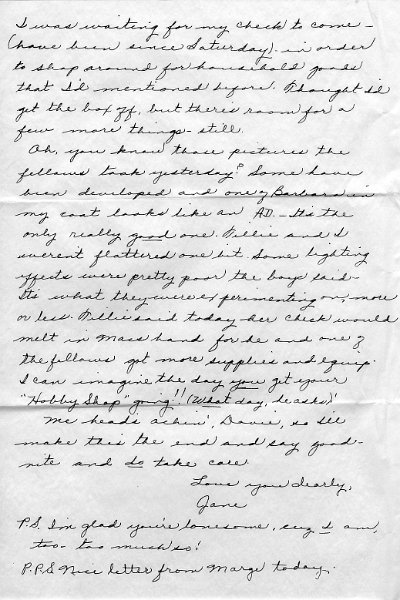 I was waiting for my check to come -
(have been since Saturday). in order
to shop around for household goods
that I'd mentioned before. Thought I'd
get the box off, but there's room for a
few more things - still.
Oh, you know those pictures the
fellows took yesterday? Some have
been developed and one of Barbara in
my coat looks like an AD. - It's the
only really good one. Millie and I
weren't flattered one bit. Some lighting
effects were pretty poor the boys said -
Its what they were experimenting on, more
or less. Millie said today her check would
melt in hand for he and one of
the fellows got more supplies and equip.
I can imagine the day you get your
"Hobby Shop" going!! (What day, he asks)!
Me heads achin', Davie, so I'll
make this the end and say good-
nite and do take care
Love you dearly,
Jane
P.S. I'm glad you're lonesome, cuz I am,
too - too much so!
P.P.S. Nice letter from Marge today.